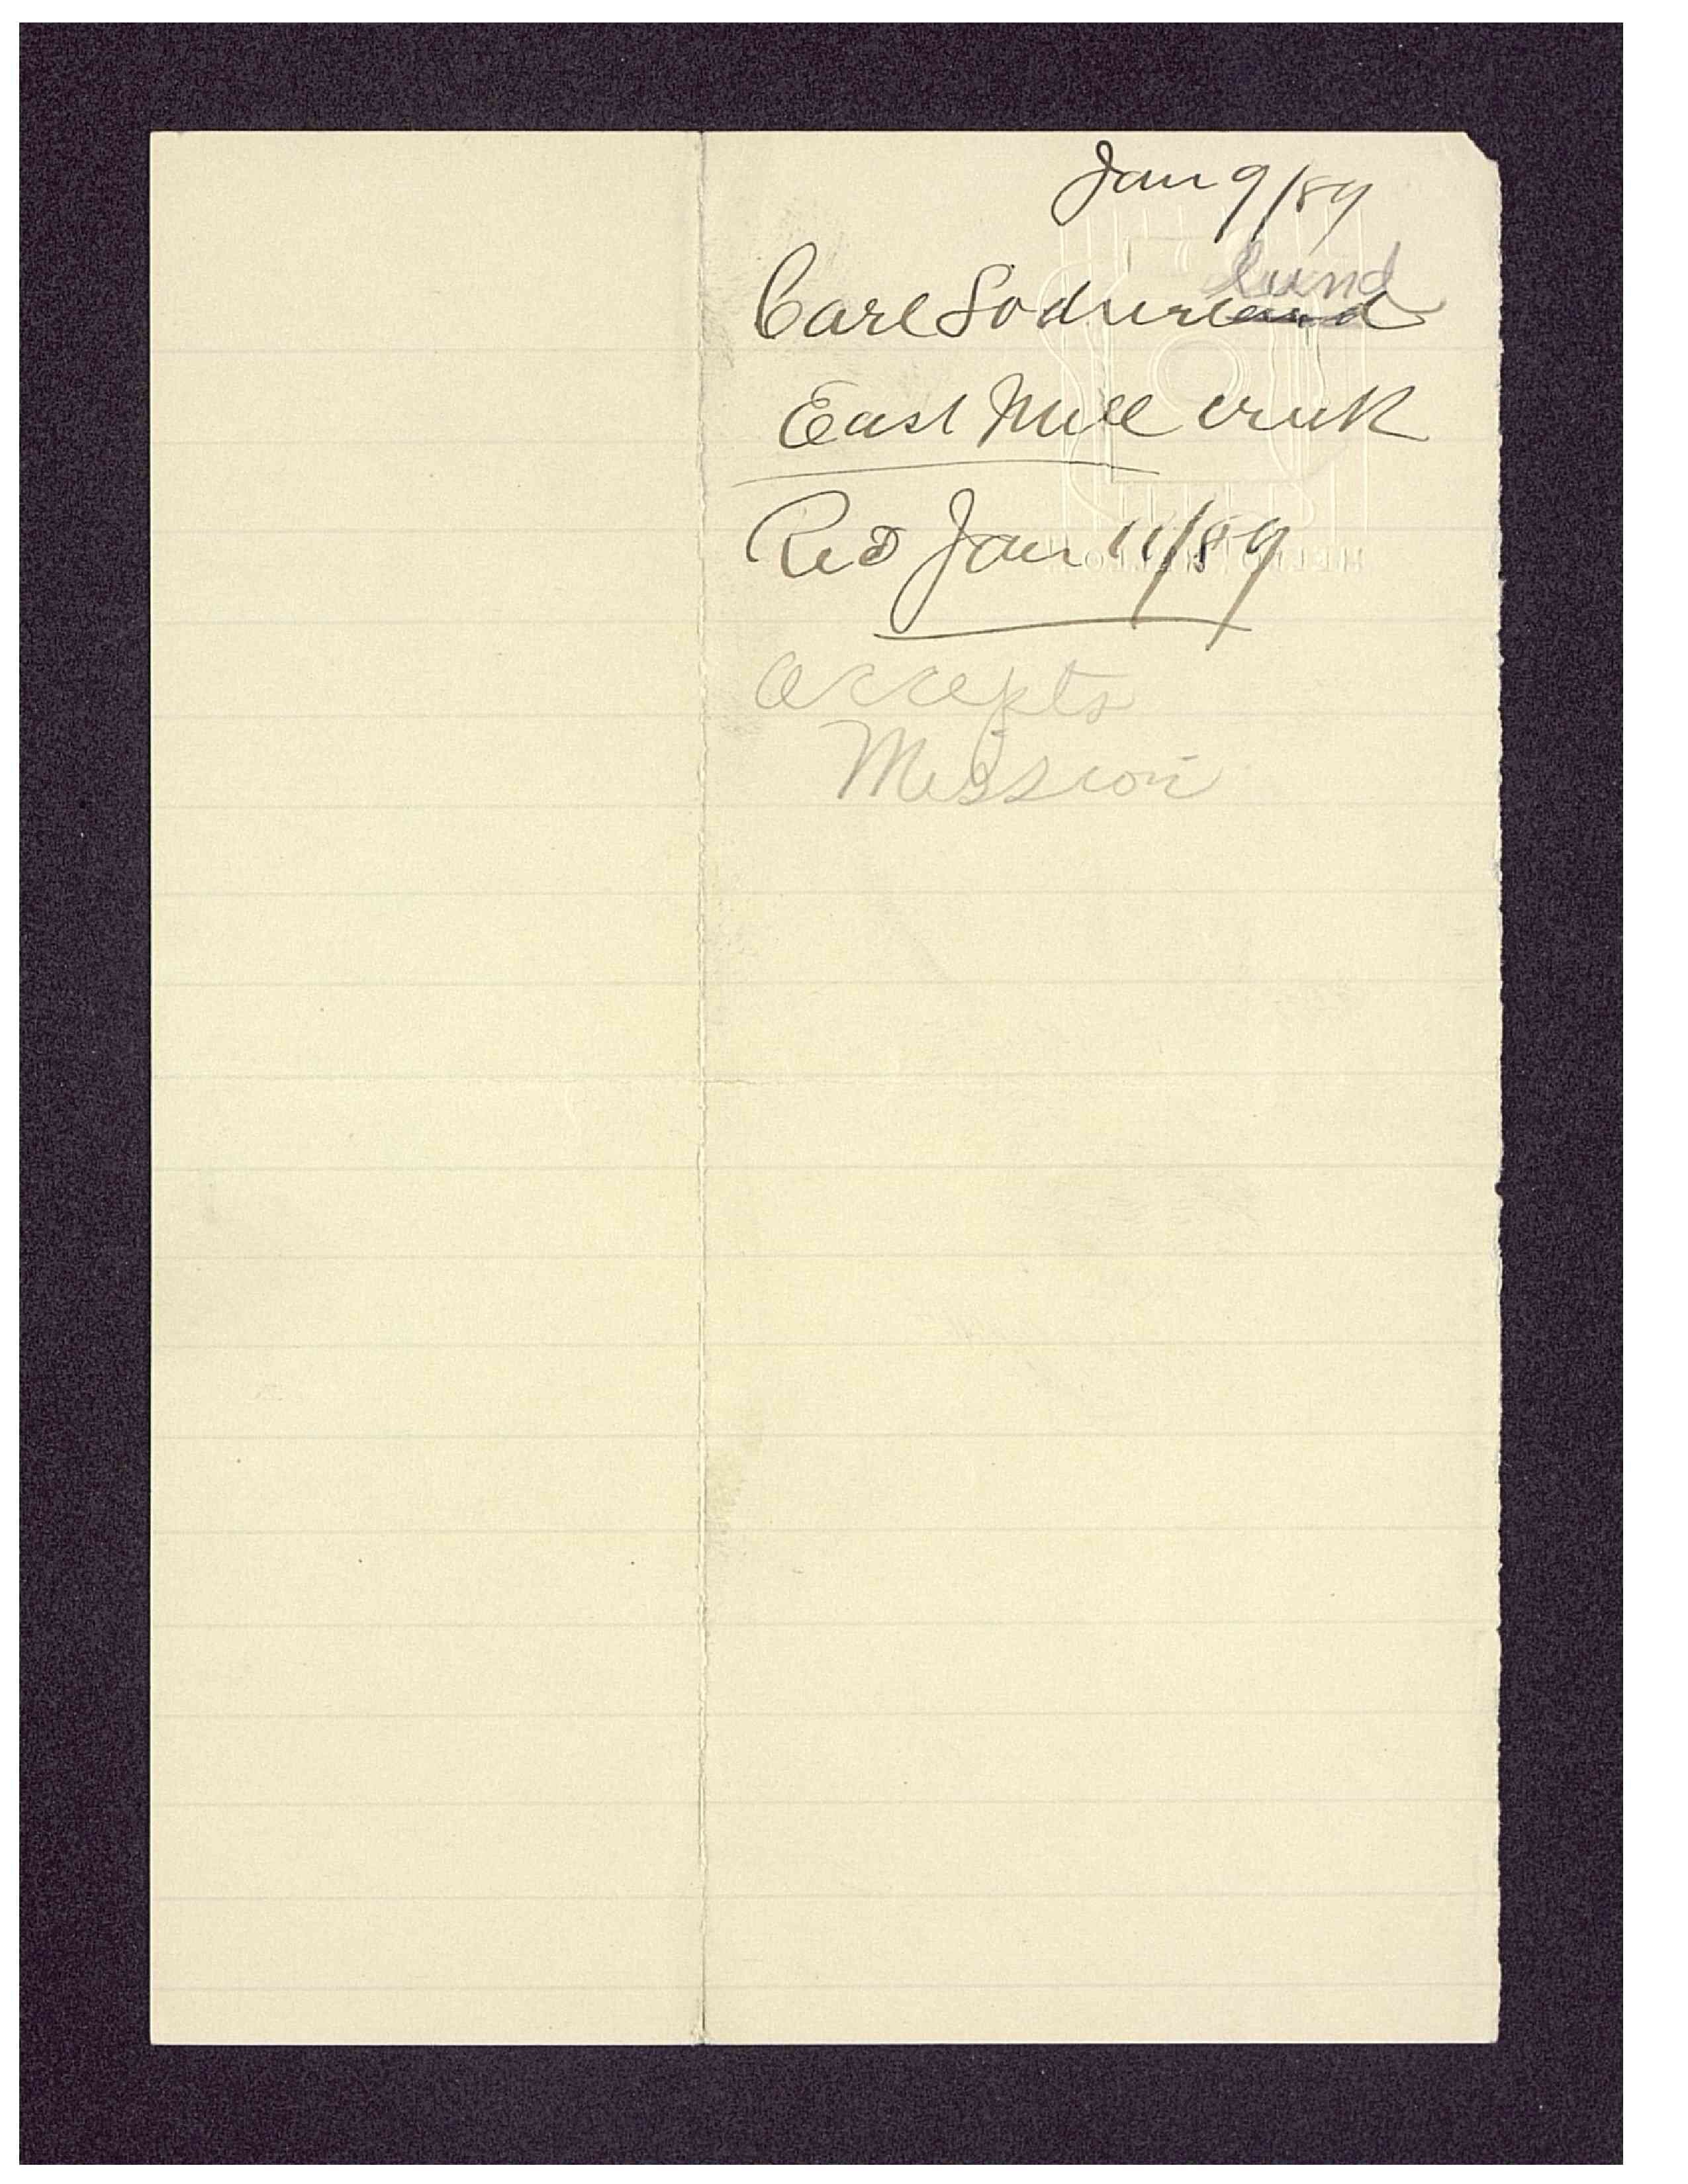 Jan 9/89
lund
Carl Soderland
East Mill creek
Recd Jan 11/89
accepts
Mission